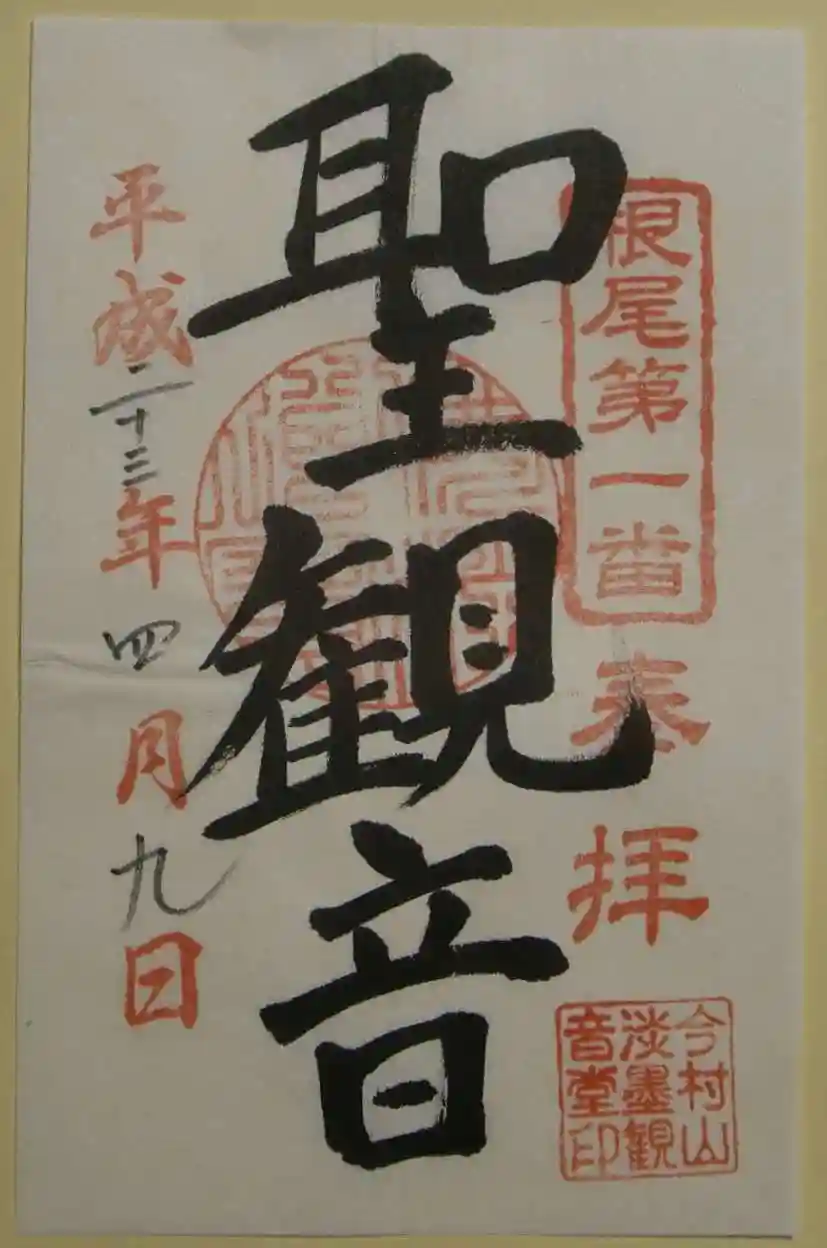 根尾第一番
奉拝
今村山
淡墨観
音堂印
聖観音
平成二十三年四月九日